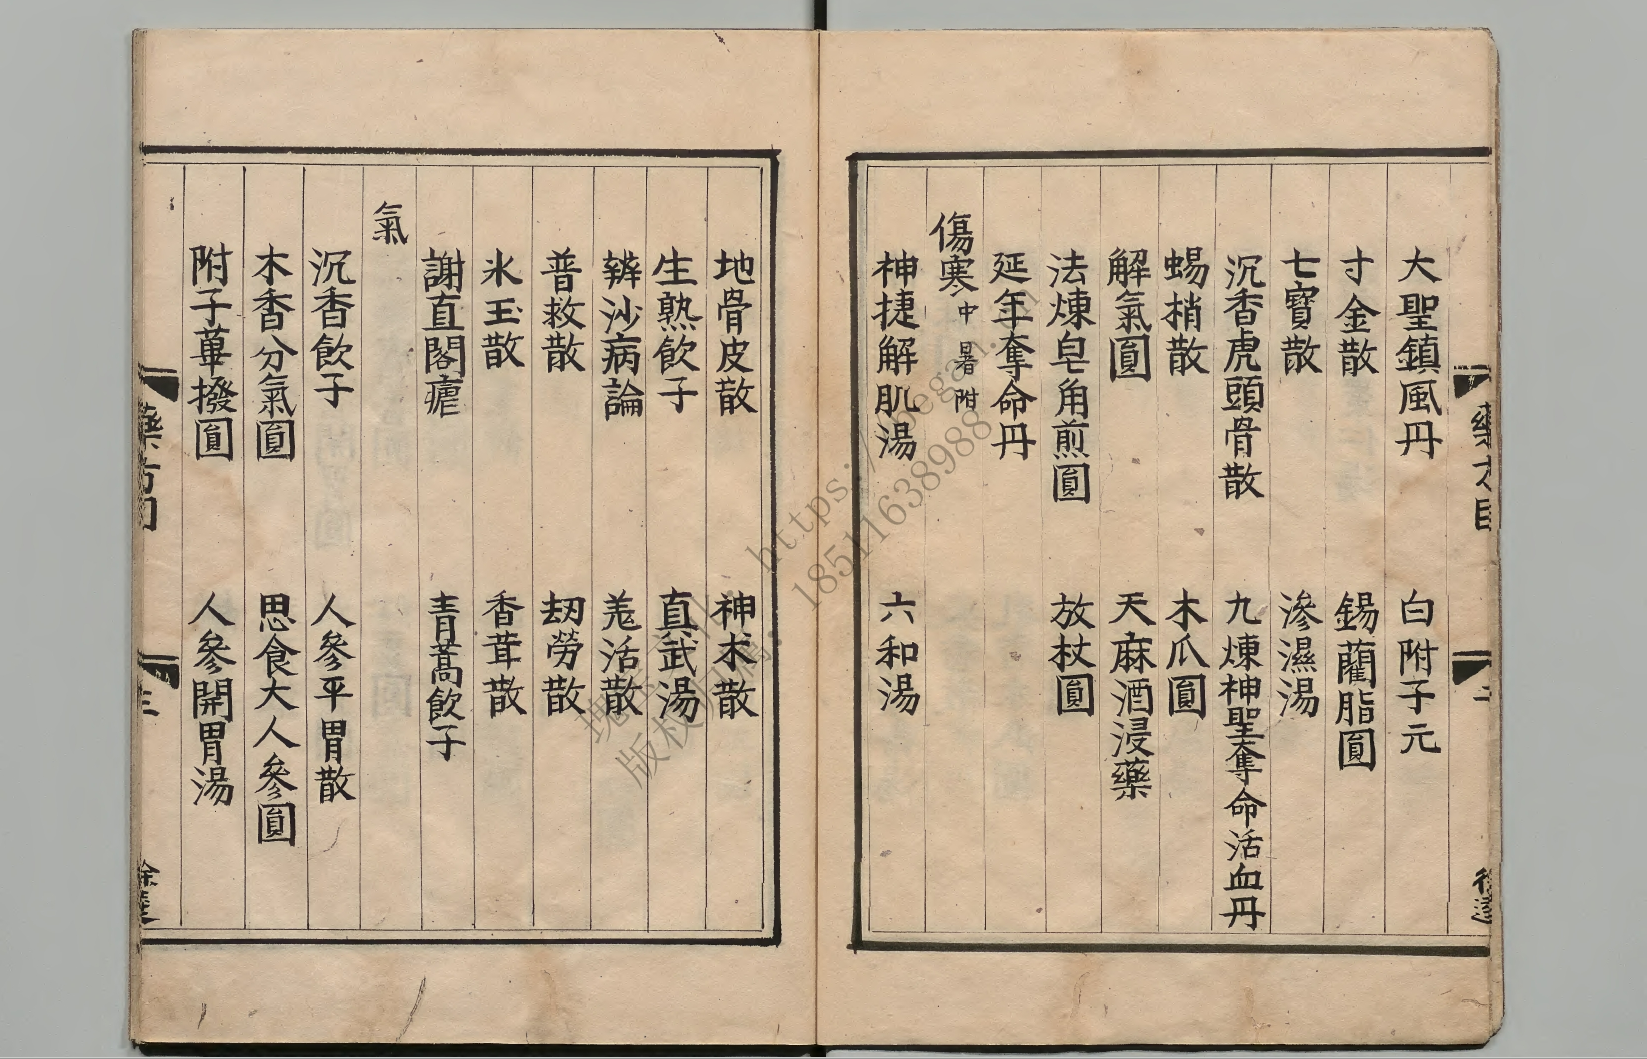 大聖鎮風丹　白附子元
寸金散　錫藺脂圓
七寶散　滲濕湯
沉香虎頭骨散　九煉神聖奪命活血丹
蝎梢散　木瓜圓
解氣圓　天麻酒浸藥
法煉皂角煎圓　放杖圓
延年奪命丹
傷寒中暑附
神捷解肌湯　六和湯
地骨皮散　神术散
生熟飲子　真武湯
辨沙病論　羗活散
普救散　刼勞散
氷玉散　香茸散
謝直閣瘧　青蒿飲子
氣
沉香飲子　人參平胃散
木香分氣圓　思食大人參圓
附子蓽撥圓　人參開胃湯
藥方目
三
https://
18511638988
版权